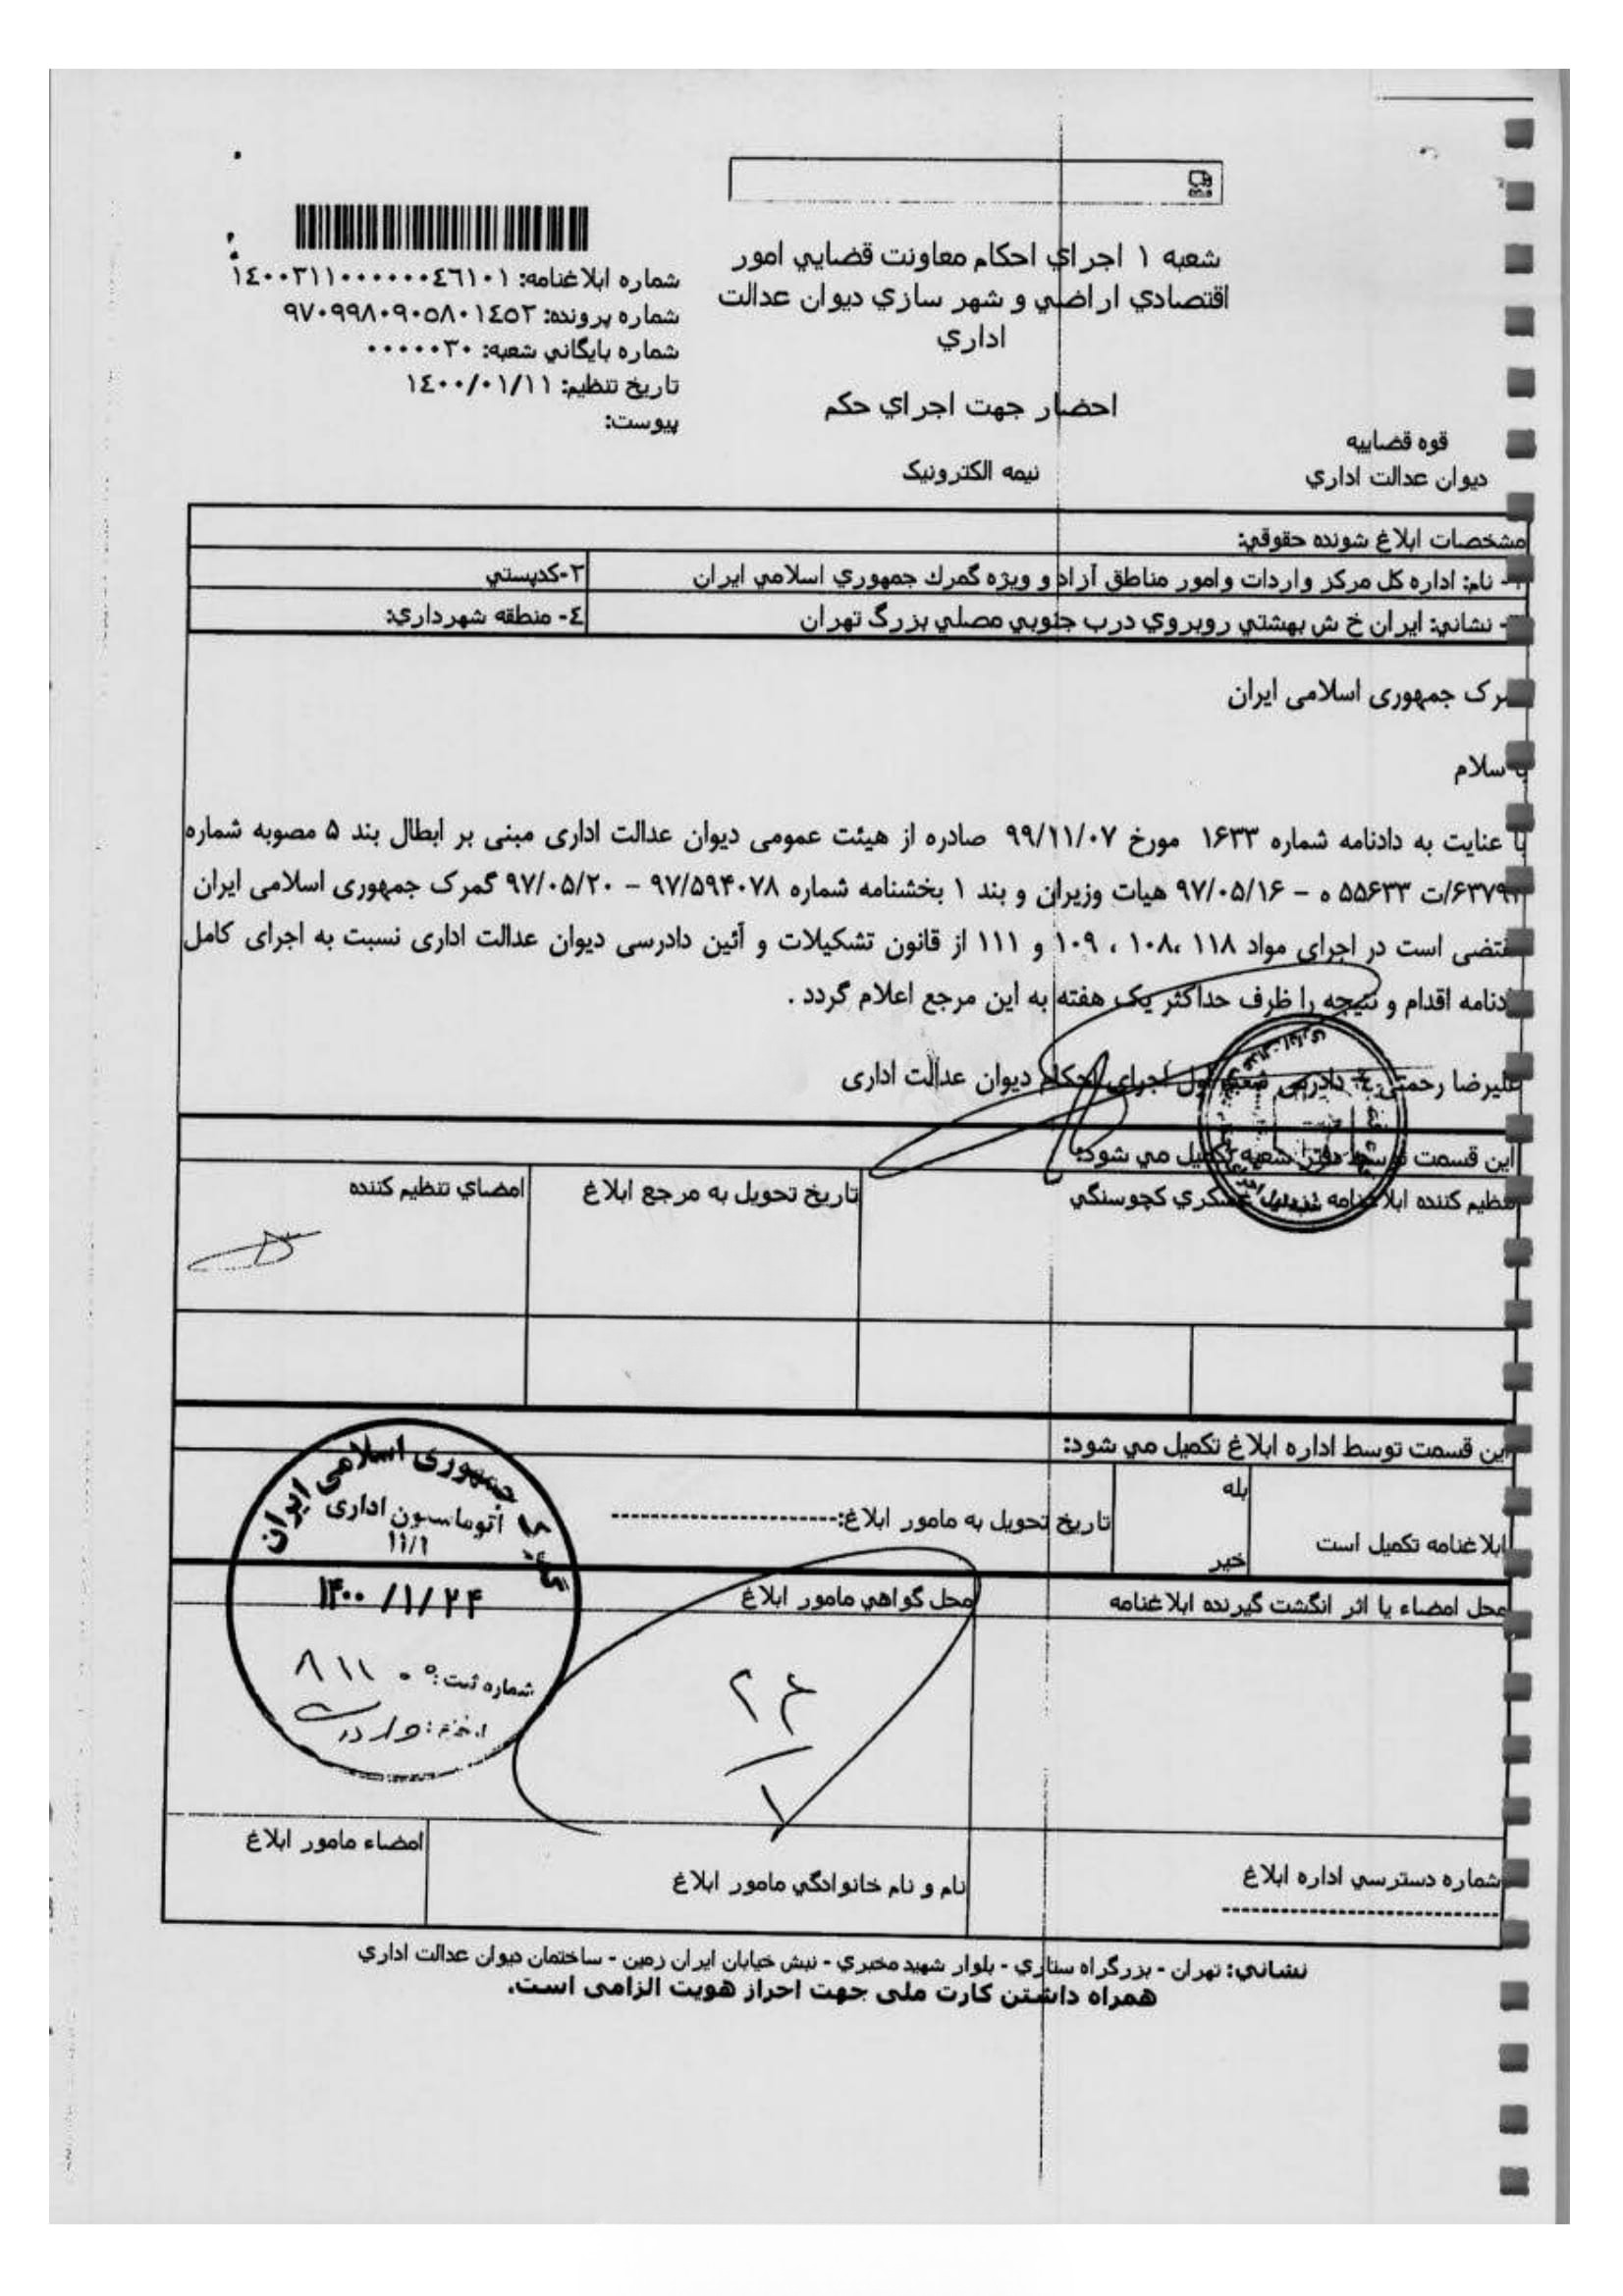 شعبه ۱ اجراي احكام معاونت قضايي امور
اقتصادي اراضي و شهر سازي ديوان عدالت
اداري
احضار جهت اجراي حكم
نيمه الكترونيک
شماره ابلاغنامه: ۱٤۰۰۳۱۱۰۰۰۰۰۰٤٦۱۰۱
شماره پرونده: ۹۷۰۹۹۸۰۹۰۵۸۰۱٤۵۳
شماره بايگاني شعبه: ۰۰۰۰۰۳۰
تاريخ تنظيم: ۱٤۰۰/۰۱/۱۱
پيوست:
قوه قضاييه
ديوان عدالت اداري
مشخصات ابلاغ شونده حقوقي:
- نام: اداره كل مركز واردات وامور مناطق آزاد و ويژه گمرك جمهوري اسلامي ايران
۳-كدپستي
- نشاني: ايران خ ش بهشتي روبروي درب جنوبي مصلي بزرگ تهران
٤- منطقه شهرداري:
رک جمهوری اسلامی ایران
با سلام
با عنایت به دادنامه شماره ۱۶۳۳ مورخ ۹۹/۱۱/۰۷ صادره از هیئت عمومی دیوان عدالت اداری مبنی بر ابطال بند ۵ مصوبه شماره
/ت ۵۵۶۳۳ ه – ۹۷/۰۵/۱۶ هیات وزیران و بند ۱ بخشنامه شماره ۹۷/۵۹۴۰۷۸ – ۹۷/۰۵/۲۰ گمرک جمهوری اسلامی ایران
مقتضی است در اجرای مواد ۱۱۸ ،۱۰۸ ، ۱۰۹ و ۱۱۱ از قانون تشکیلات و آئین دادرسی دیوان عدالت اداری نسبت به اجرای کامل
دادنامه اقدام و نتیجه را ظرف حداکثر یک هفته به این مرجع اعلام گردد .
علیرضا رحمتی - دادرس شعبه اول اجرای احکام دیوان عدالت اداری
اين قسمت توسط دفتر شعبه تكميل مي شود:
تنظيم كننده ابلاغنامه عسكري كچوسنگي
تاريخ تحويل به مرجع ابلاغ
امضاي تنظيم كننده
اين قسمت توسط اداره ابلاغ تكميل مي شود:
ابلاغنامه تكميل است
بله
خير
تاريخ تحويل به مامور ابلاغ:-----------------------
جمهوری اسلامی ایران
اتوماسیون اداری
۱۱/۱
۱۴۰۰ /۱/ ۲۴
شماره ثبت: ۸۱۱۰
محل امضاء يا اثر انگشت گيرنده ابلاغنامه
محل گواهي مامور ابلاغ
۲۴
۱
شماره دسترسي اداره ابلاغ
----------------------------
نام و نام خانوادگي مامور ابلاغ
امضاء مامور ابلاغ
نشاني: تهران - بزرگراه ستاري - بلوار شهيد مخبري - نبش خيابان ايران زمين - ساختمان ديوان عدالت اداري
همراه داشتن کارت ملی جهت احراز هویت الزامی است.